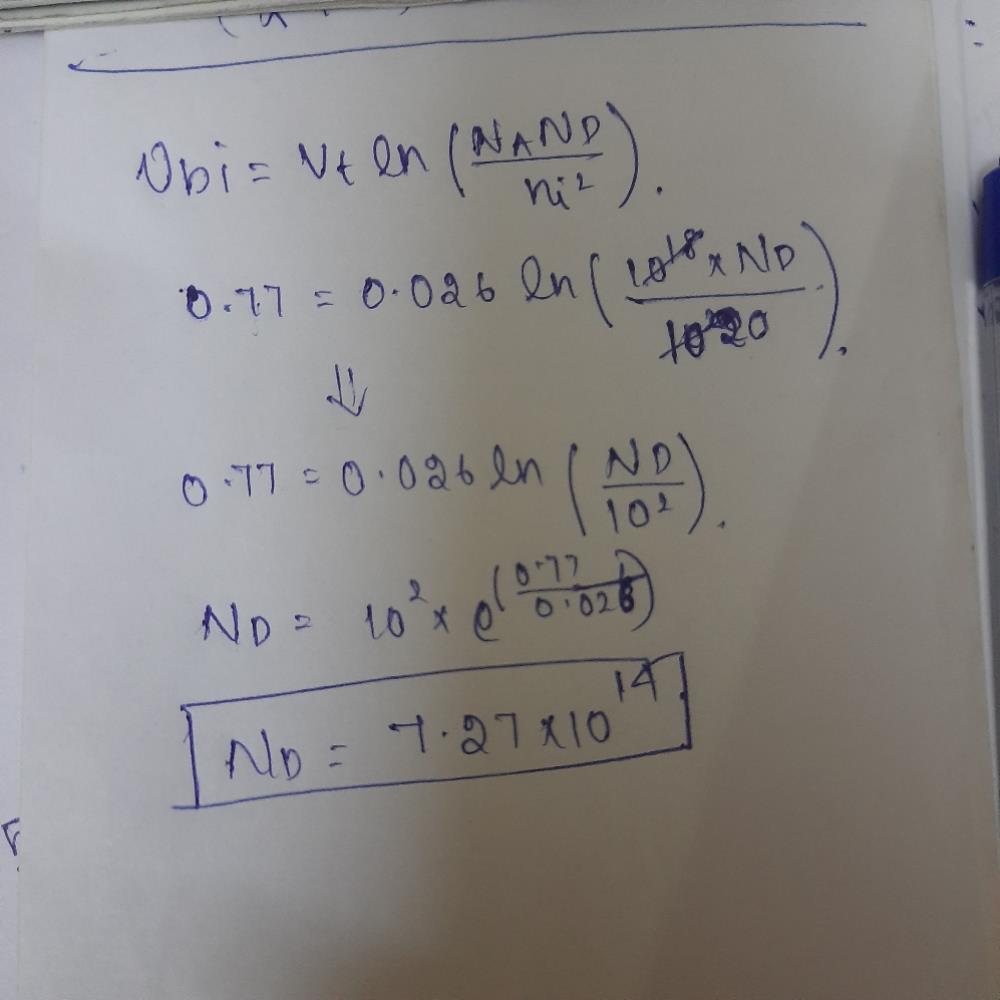 Vbi = Vt ln (NAND / ni²).
0.77 = 0.026 ln (10¹⁸ × ND / 10²⁰).
⇓
0.77 = 0.026 ln (ND / 10²).
ND = 10² × e^(0.77 / 0.026)
ND = 7.27 × 10¹⁴